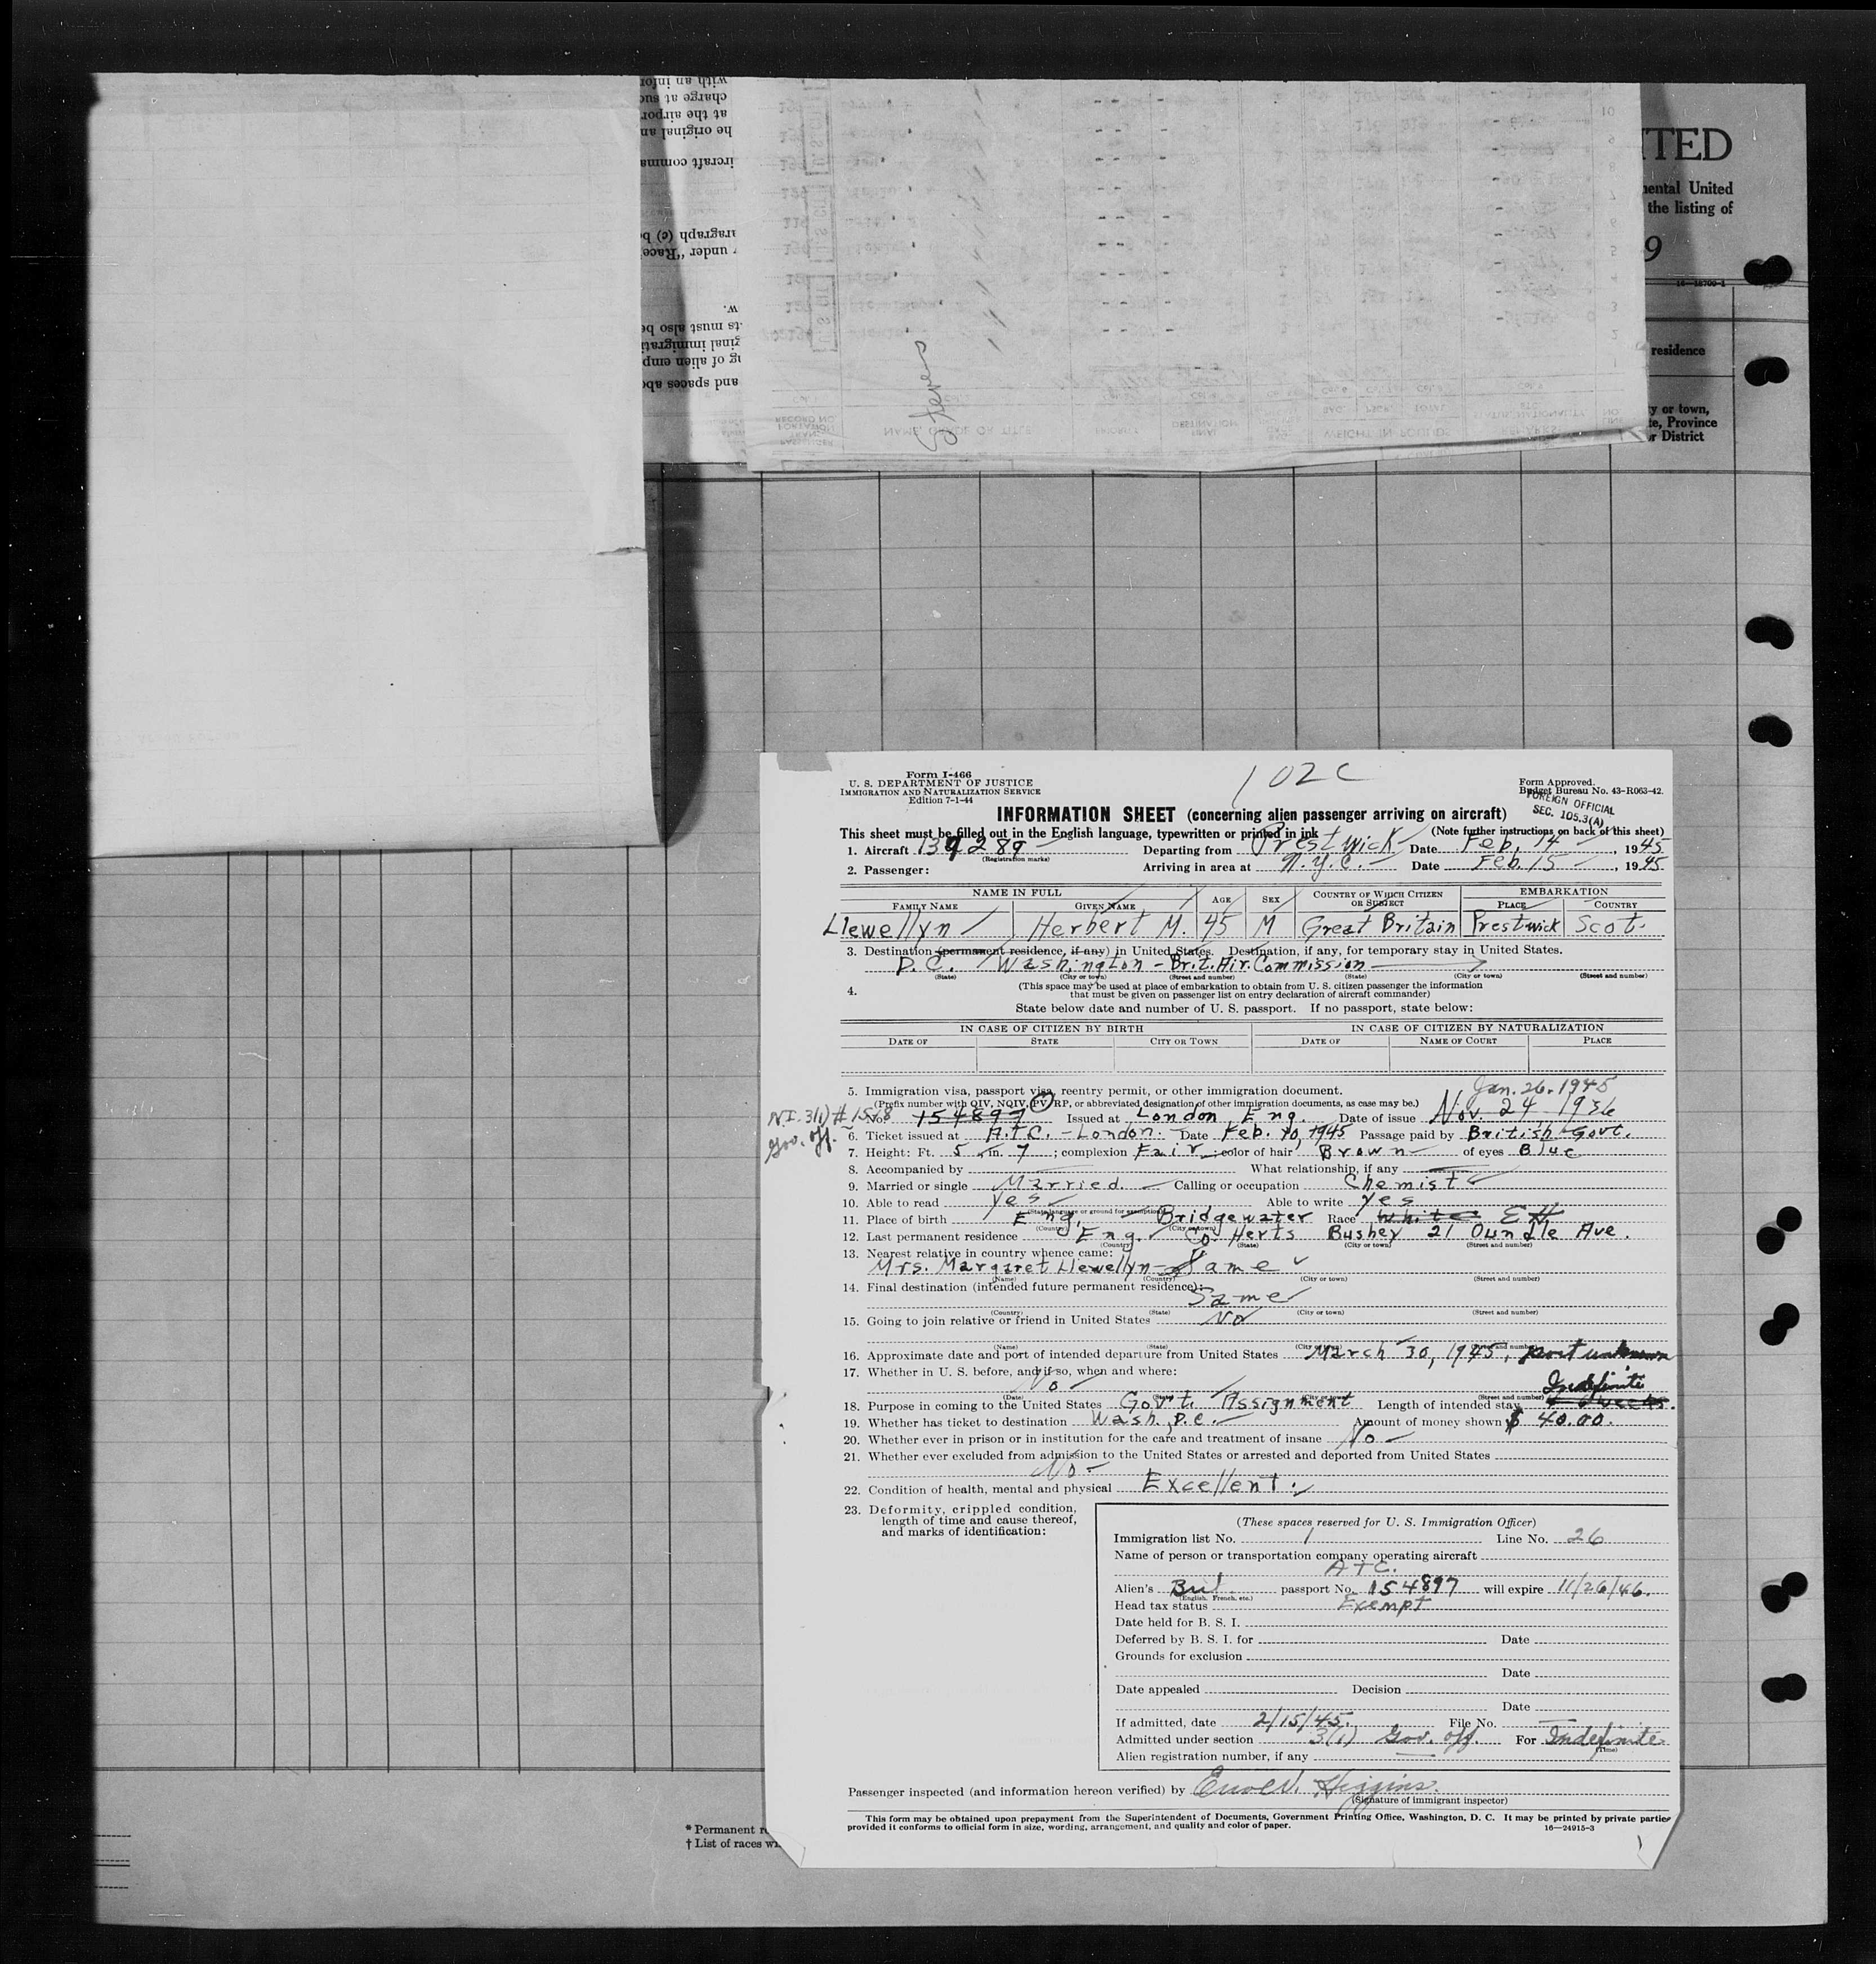 ITED
mental United
the listing of
9
16—18700-1
residence
y or town,
te, Province
or District
with an infor
charge at suc
at the airpor
he original an
ircraft comma
aragraph (c) b
under "Race
w.
ts must also be
ginal immigrati
ng of alien emp
and spaces abo
Stevens
PASSENGER
NAME, GRADE OR TITLE
PRIORITY
FINAL DESTINATION
WEIGHT IN POUNDS
REMARKS
102C
Form I-466
U. S. DEPARTMENT OF JUSTICE
IMMIGRATION AND NATURALIZATION SERVICE
Edition 7-1-44
Form Approved.
Budget Bureau No. 43-R063-42.
FOREIGN OFFICIAL
SEC. 105.3(A)
INFORMATION SHEET (concerning alien passenger arriving on aircraft)
This sheet must be filled out in the English language, typewritten or printed in ink (Note further instructions on back of this sheet)
1. Aircraft 139289 Departing from Prestwick Date Feb. 14, 1945
(Registration marks)
2. Passenger: Arriving in area at N.Y.C. Date Feb. 15, 1945
NAME IN FULL AGE SEX COUNTRY OF WHICH CITIZEN OR SUBJECT EMBARKATION
FAMILY NAME GIVEN NAME PLACE COUNTRY
Llewellyn Herbert M. 45 M Great Britain Prestwick Scot.
3. Destination (permanent residence, if any) in United States. Destination, if any, for temporary stay in United States.
D.C. Washington - Brit. Air. Commission
(State) (City or town) (Street and number) (State) (City or town) (Street and number)
4. (This space may be used at place of embarkation to obtain from U. S. citizen passenger the information
that must be given on passenger list on entry declaration of aircraft commander)
State below date and number of U. S. passport. If no passport, state below:
IN CASE OF CITIZEN BY BIRTH IN CASE OF CITIZEN BY NATURALIZATION
DATE OF STATE CITY OR TOWN DATE OF NAME OF COURT PLACE
5. Immigration visa, passport visa, reentry permit, or other immigration document. Jan. 26, 1945
(Prefix number with QIV, NQIV, PV, RP, or abbreviated designation of other immigration documents, as case may be.)
N.I. 3(1) #1518 No. 154897 Issued at London Eng. Date of issue Nov. 24 1936
Gov. off.
6. Ticket issued at A.T.C. - London. Date Feb. 10, 1945 Passage paid by British Govt.
7. Height: Ft. 5 in. 7; complexion Fair; color of hair Brown of eyes Blue
8. Accompanied by What relationship, if any
9. Married or single Married. Calling or occupation Chemist
10. Able to read Yes Able to write Yes
(State language or ground for exemption)
11. Place of birth Eng. Bridgewater Race White
(Country) (City or town)
12. Last permanent residence Eng. Co Herts Bushey 21 Oundle Ave.
(Country) (State) (City or town) (Street and number)
13. Nearest relative in country whence came:
Mrs. Margaret Llewellyn - Same
(Name) (Country) (City or town) (Street and number)
14. Final destination (intended future permanent residence):
Same
(Country) (State) (City or town) (Street and number)
15. Going to join relative or friend in United States No
(Name) (State) (City or town) (Street and number)
16. Approximate date and port of intended departure from United States March 30, 1945, port unknown
17. Whether in U. S. before, and if so, when and where:
No
(Date) (State) (City or town) (Street and number)
Indefinite
18. Purpose in coming to the United States Gov't. Assignment Length of intended stay weeks.
19. Whether has ticket to destination Wash. D.C. Amount of money shown $ 40.00.
20. Whether ever in prison or in institution for the care and treatment of insane No
21. Whether ever excluded from admission to the United States or arrested and deported from United States
No
22. Condition of health, mental and physical Excellent.
23. Deformity, crippled condition,
length of time and cause thereof,
and marks of identification:
(These spaces reserved for U. S. Immigration Officer)
Immigration list No. 1 Line No. 26
Name of person or transportation company operating aircraft
ATC.
Alien's Brit. passport No. 154897 will expire 11/26/46.
(English, French, etc.)
Head tax status Exempt
Date held for B. S. I.
Deferred by B. S. I. for Date
Grounds for exclusion
Date
Date appealed Decision
Date
If admitted, date 2/15/45. File No.
Admitted under section 3(1) Gov. off. For Indefinite
(Time)
Alien registration number, if any
Passenger inspected (and information hereon verified) by Higgins.
(Signature of immigrant inspector)
This form may be obtained upon prepayment from the Superintendent of Documents, Government Printing Office, Washington, D. C. It may be printed by private parties
provided it conforms to official form in size, wording, arrangement, and quality and color of paper. 16—24915-3
* Permanent r
† List of races wi